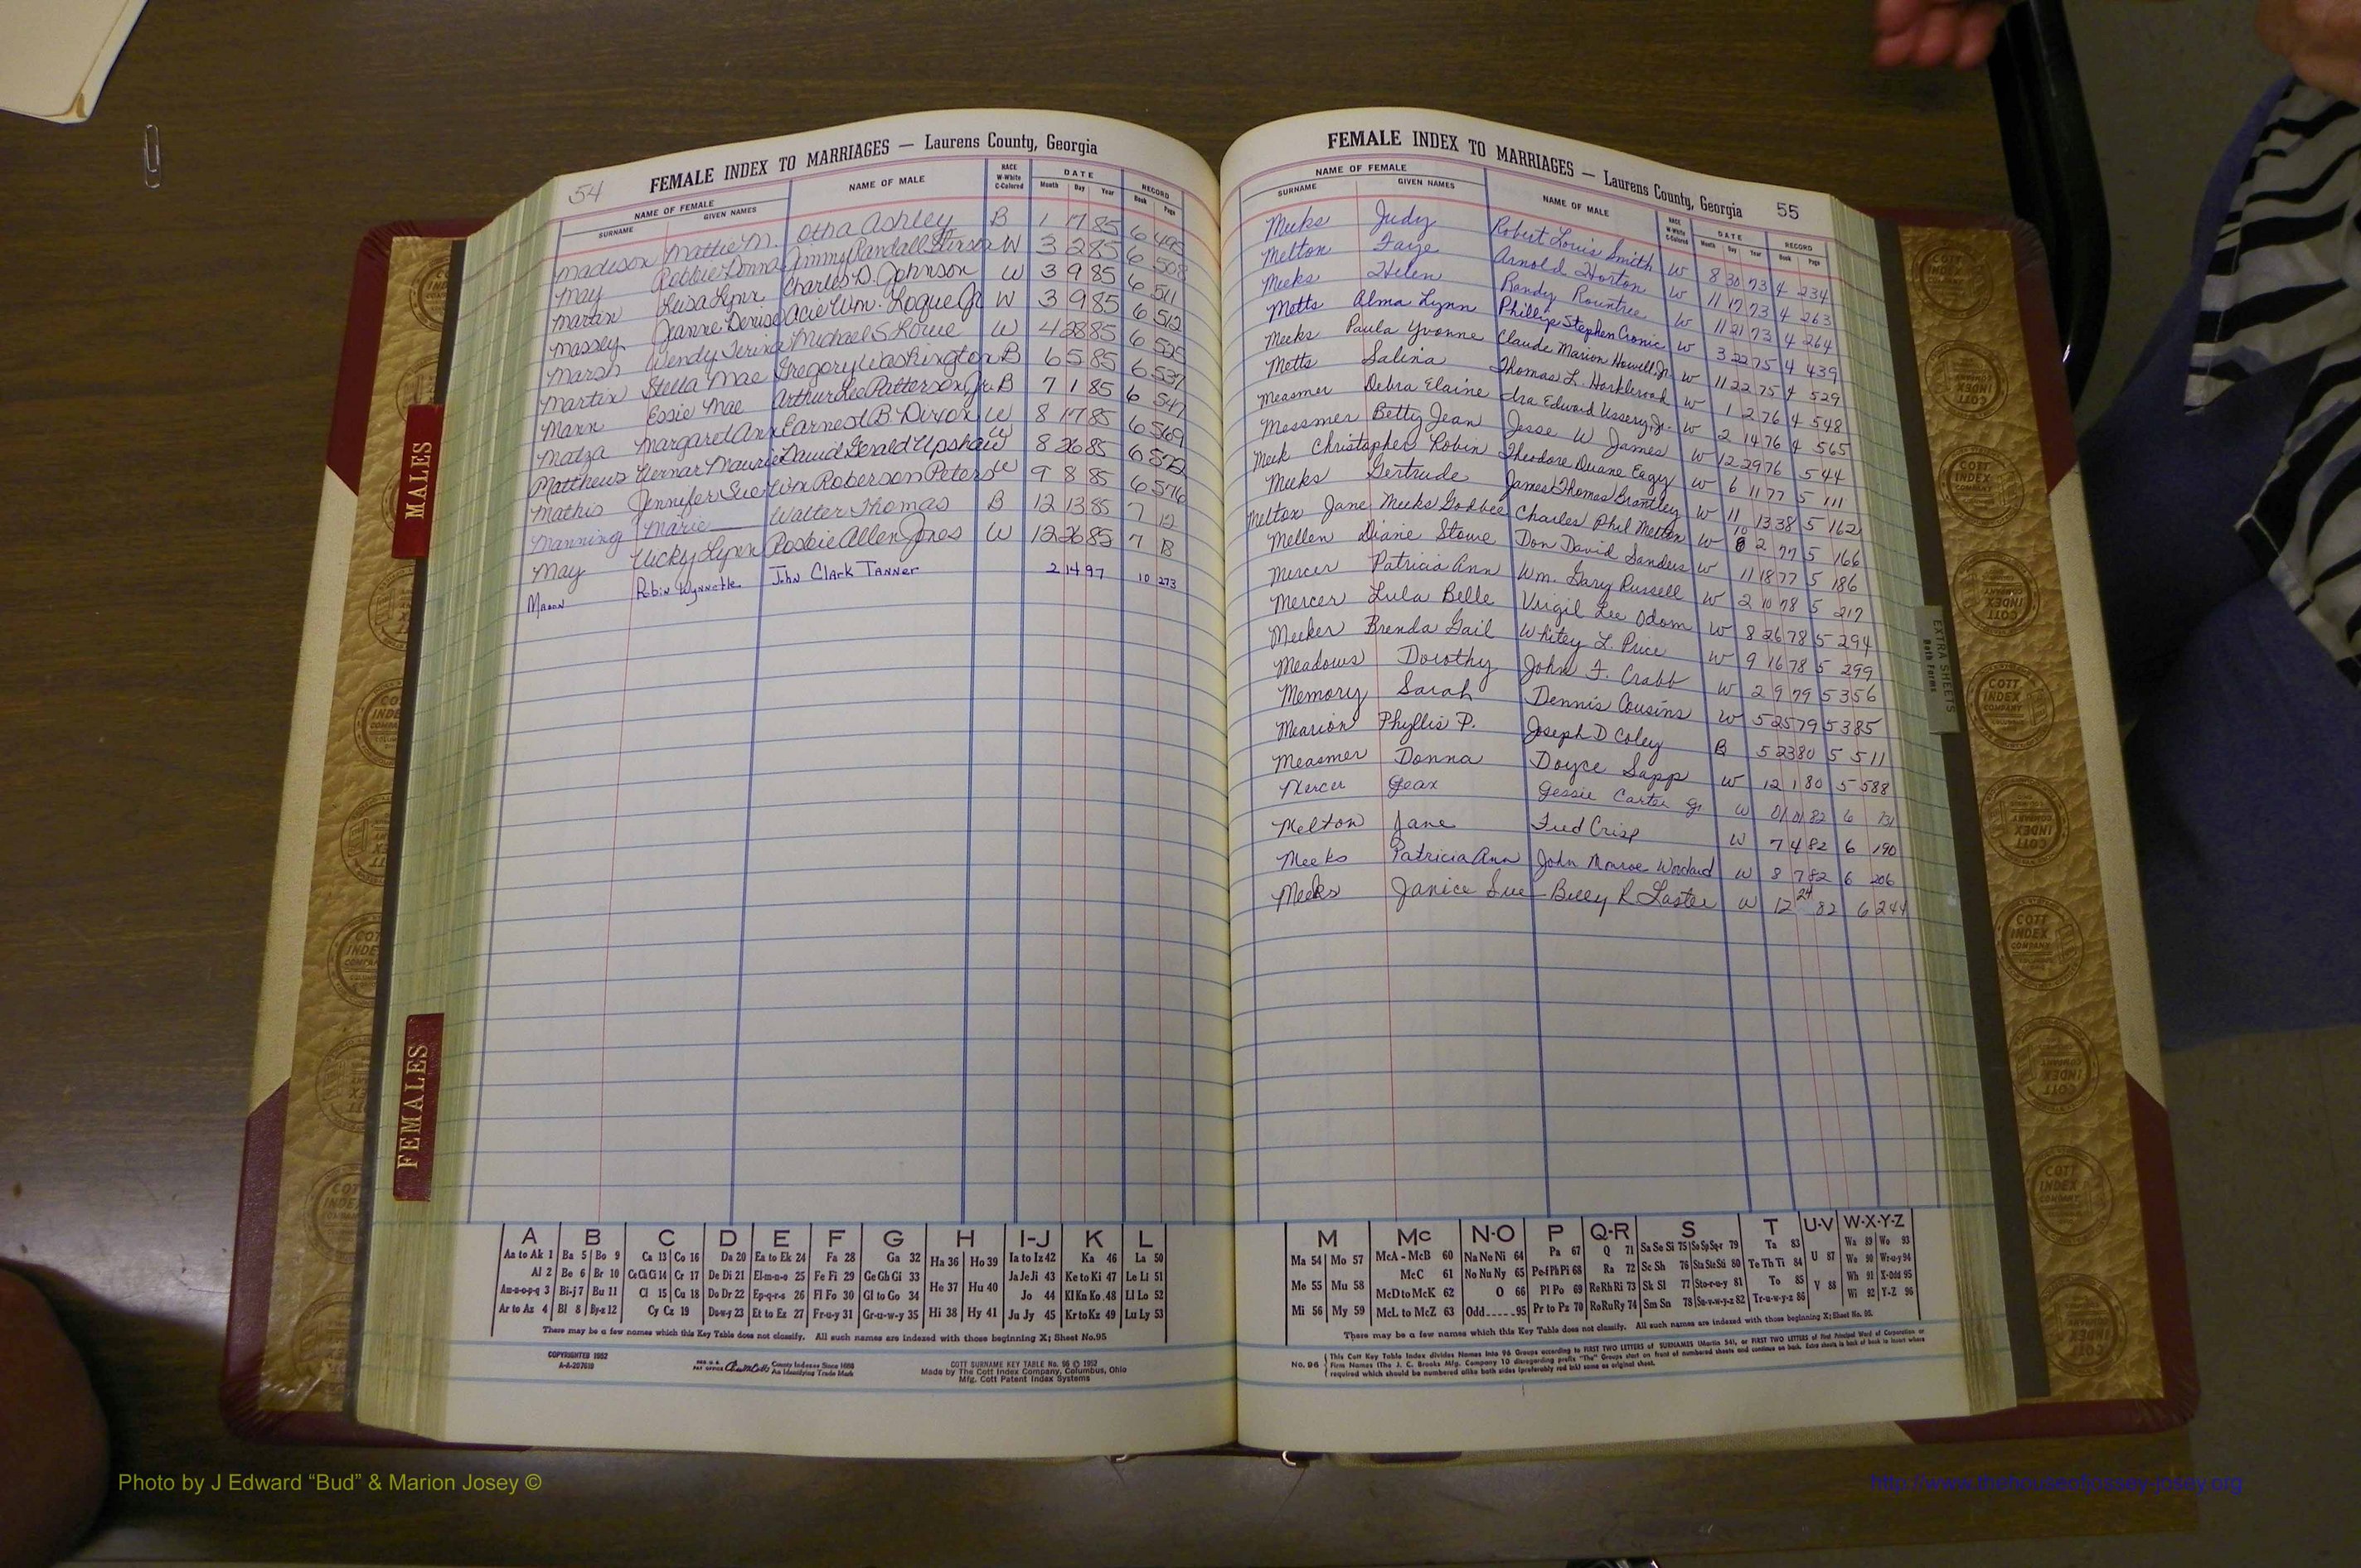 54
FEMALE INDEX TO MARRIAGES — Laurens County, Georgia
NAME OF FEMALE NAME OF MALE RACE W-White C-Colored DATE RECORD
SURNAME GIVEN NAMES Month Day Year Book Page
Madison Mattie M. Otha Ashley B 1 17 85 6 495
May Robbie Donna Jimmy Randall W 3 2 85 6 508
Luisa Lynn Charles D. Johnson W 3 9 85 6 511
Massey Jeanne Denise Acie Wm. Logue Jr W 3 9 85 6 512
Marsh Wendy Michael S Lowe W 4 28 85 6 525
Martin Stella Mae Gregory Washington B 6 5 85 6 537
Mann Essie Mae Arthur Lee Patterson Jr. B 7 1 85 6 547
Margaret Ann Earnest B Dixon W 8 17 85 6 569
Matthews David Gerald Upshaw W 8 26 85 6 572
Mathis Jennifer Sue Wm Roberson Peters W 9 8 85 6 576
Manning Marie Walter Thomas B 12 13 85 7 12
May Vicky Lynn Robbie Allen Jones W 12 26 85 7
Mason Robin Wynnette John Clark Tanner 2 14 97 10 273
A B C D E F G H I-J K L
Aa to Ak 1 Ba 5 Bo 9 Ca 13 Co 16 Da 20 Ea to Ek 24 Fa 28 Ga 32 Ha 36 Ho 39 Ia to Iz 42 Ka 46 La 50
Al 2 Be 6 Br 10 Ce Ch Ci 14 Cr 17 De Di 21 El-m-n-o 25 Fe Fi 29 Ge Gh Gi 33 He 37 Hu 40 Ja Je Ji 43 Ke to Ki 47 Le Li 51
Am-n-o-p-q 3 Bi-j 7 Bu 11 Cl 15 Cu 18 Do Dr 22 Ep-q-r-s 26 Fl Fo 30 Gl to Go 34 Jo 44 Kl Kn Ko 48 Ll Lo 52
Ar to Az 4 Bl 8 By-z 12 Cy Cz 19 Du-w-y 23 Et to Ez 27 Fr-u-y 31 Gr-u-w-y 35 Hi 38 Hy 41 Ju Jy 45 Kr to Kz 49 Lu Ly 53
There may be a few names which this Key Table does not classify. All such names are indexed with those beginning X; Sheet No.95
COPYRIGHTED 1952
A-A-207619
REG. U.S. PAT OFFICE County Indexes Since 1888
An Identifying Trade Mark
COTT SURNAME KEY TABLE No. 96 © 1952
Made by The Cott Index Company, Columbus, Ohio
Mfg. Cott Patent Index Systems
FEMALE INDEX TO MARRIAGES — Laurens County, Georgia 55
NAME OF FEMALE NAME OF MALE RACE W-White C-Colored DATE RECORD
SURNAME GIVEN NAMES Month Day Year Book Page
Meeks Judy Robert Louis Smith W 8 30 73 4 234
Melton Faye Arnold Horton W 11 17 73 4 263
Meeks Helen Randy Rountree W 11 21 73 4 264
Metts Alma Lynn Phillip Stephen Cronic W 3 22 75 4 439
Meeks Paula Yvonne Claude Marion Howell Jr. W 11 22 75 4 529
Metts Salina Thomas L. Harkleroad W 1 2 76 4 548
Measmer Debra Elaine Ira Edward Ussery, Jr. W 2 14 76 4 565
Messmer Betty Jean Jesse W James W 12 29 76 5 44
Meek Christopher Robin Theodore Duane Eagy W 6 11 77 5 111
Meeks Gertrude James Thomas Brantley W 11 13 38 5 162
Melton Jane Meeks Godbee Charles Phil Melton W 10 2 77 5 166
Mellen Diane Stowe Don David Sanders W 11 18 77 5 186
Mercer Patricia Ann Wm. Gary Russell W 2 10 78 5 217
Mercer Lula Belle Virgil Lee Odom W 8 26 78 5 294
Meeker Brenda Gail Whitey L. Price W 9 16 78 5 299
Meadows Dorothy John F. Crabb W 2 9 79 5 356
Memory Sarah Dennis Cousins W 5 25 79 5 385
Mearion Phyllis P. Joseph D Coley B 5 23 80 5 511
Measmer Donna Doyce Sapp W 12 1 80 5 588
Mercer Jean Jessie Carter Jr. W 01 01 82 6 131
Melton Jane Fred Crisp W 7 4 82 6 190
Meeks Patricia Ann John Monroe Woodard W 8 7 82 6 206
Meeks Janice Sue Billy R Laster W 12 24 82 6 244
M Mc N-O P Q-R S T U-V W-X-Y-Z
Ma 54 Mo 57 McA - McB 60 Na Ne Ni 64 Pa 67 Q 71 Sa Se Si 75 So Sp Sq-r 79 Ta 83 U 87 Wa 89 Wo 93
Me 55 Mu 58 McC 61 No Nu Ny 65 Pe-f Ph Pi 68 Ra 72 Sc Sh 76 Sta Ste Sti 80 Te Th Ti 84 We 90 Wr-u-y 94
McD to McK 62 O 66 Pl Po 69 Re Rh Ri 73 Sk Sl 77 Sto-r-u-y 81 To 85 V 88 Wh 91 X-Odd 95
Mi 56 My 59 McL to McZ 63 Odd 95 Pr to Pz 70 Ro Ru Ry 74 Sm Sn 78 Su-v-w-y-z 82 Tr-u-w-y-z 86 Wi 92 Y-Z 96
There may be a few names which this Key Table does not classify. All such names are indexed with those beginning X; Sheet No. 95.
No. 96 This Cott Key Table Index divides Names into 96 Groups according to FIRST TWO LETTERS of SURNAMES (Martin 54), or FIRST TWO LETTERS of First Principal Word of Corporation or
Firm Names (The J. C. Brooks Mfg. Company 10 disregarding prefix "The") Groups start on front of numbered sheets and continue on back. Extra sheets in back of book to insert where
required which should be numbered alike both sides (preferably red ink) same as original sheet.
MALES
FEMALES
EXTRA SHEETS
Both Forms
COTT INDEX COMPANY
Photo by J Edward “Bud” & Marion Josey ©
http://www.thehouseofjossey-josey.org